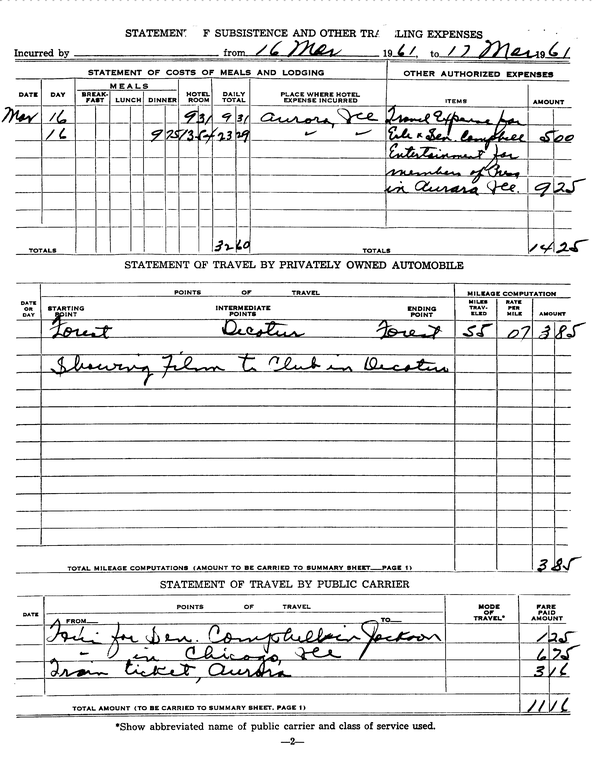 STATEMEN F SUBSISTENCE AND OTHER TRA LING EXPENSES
Incurred by from 16 Mar 1961, to 17 Mar 1961
STATEMENT OF COSTS OF MEALS AND LODGING OTHER AUTHORIZED EXPENSES
DATE DAY MEALS BREAK-FAST LUNCH DINNER HOTEL ROOM DAILY TOTAL PLACE WHERE HOTEL EXPENSE INCURRED ITEMS AMOUNT
Mar 16 9 31 9 31 Aurora, Ill Travel Expense for
16 9 75 13 54 23 29 " " Erle & Sen. Campbell 5 00
Entertainment for
members of Press
in Aurora Ill. 9 25
TOTALS 32 60 TOTALS 14 25
STATEMENT OF TRAVEL BY PRIVATELY OWNED AUTOMOBILE
DATE OR DAY POINTS OF TRAVEL MILEAGE COMPUTATION
STARTING POINT INTERMEDIATE POINTS ENDING POINT MILES TRAV-ELED RATE PER MILE AMOUNT
Forest Decatur Forest 55 07 3 85
Showing Film to Club in Decatur
TOTAL MILEAGE COMPUTATIONS (AMOUNT TO BE CARRIED TO SUMMARY SHEET PAGE 1) 3 85
STATEMENT OF TRAVEL BY PUBLIC CARRIER
DATE POINTS OF TRAVEL MODE OF TRAVEL* FARE PAID AMOUNT
FROM TO
Taxi for Sen. Campbell in Jackson 1 25
" in Chicago, Ill 6 75
Train ticket, Aurora 3 16
TOTAL AMOUNT (TO BE CARRIED TO SUMMARY SHEET, PAGE 1) 11 16
*Show abbreviated name of public carrier and class of service used.
—2—